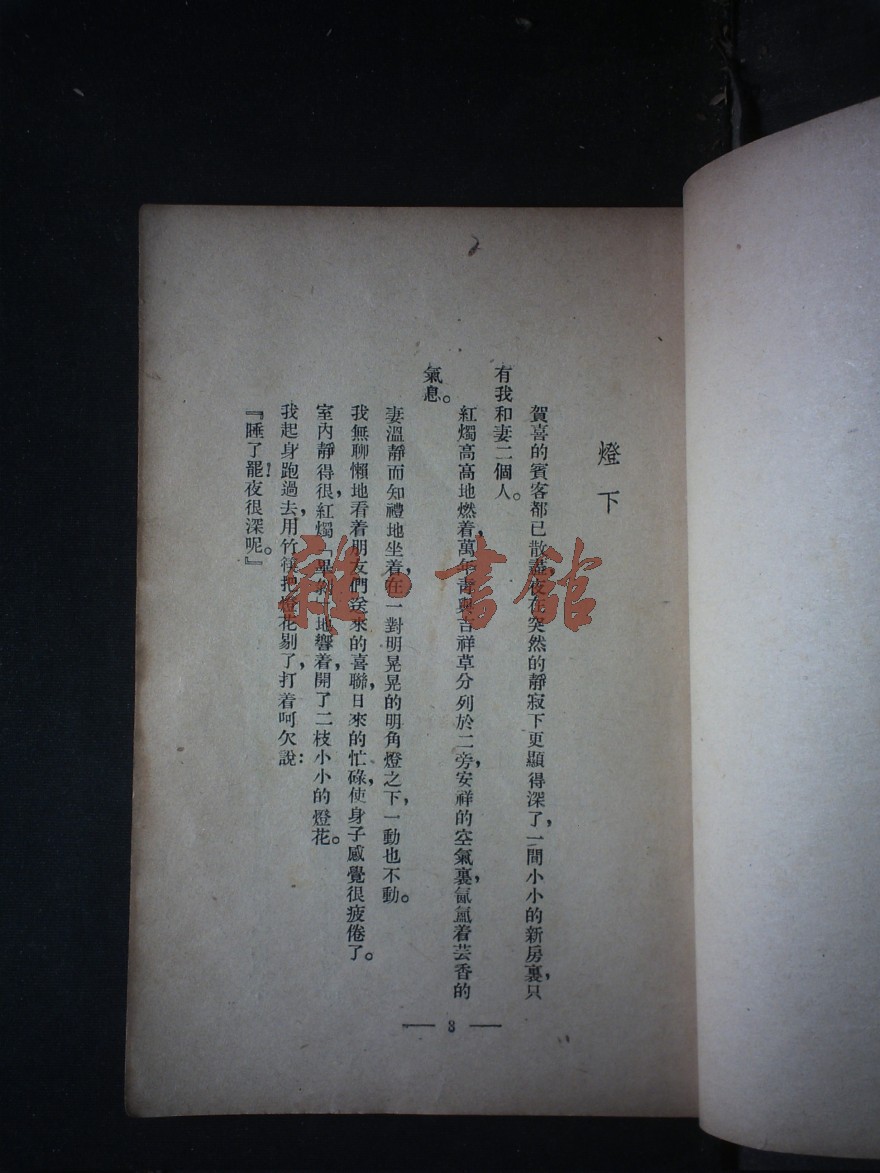 燈下
賀喜的賓客都已散盡夜在突然的靜寂下更顯得深了，一間小小的新房裏，只
有我和妻二個人。
紅燭高高地燃着，萬年青與吉祥草分列於二旁，安祥的空氣裏，氤氳着芸香的
氣息。
妻溫靜而知禮地坐着，在一對明晃晃的明角燈之下，一動也不動。
我無聊懶地看着朋友們送來的喜聯，日來的忙碌，使身子感覺很疲倦了。
室內靜得很，紅燭「畢剝」地響着，開了二枝小小的燈花。
我起身跑過去，用竹筷把燈花剔了，打着呵欠說：
『睡了罷！夜很深呢。』
— 3 —
雜·書館